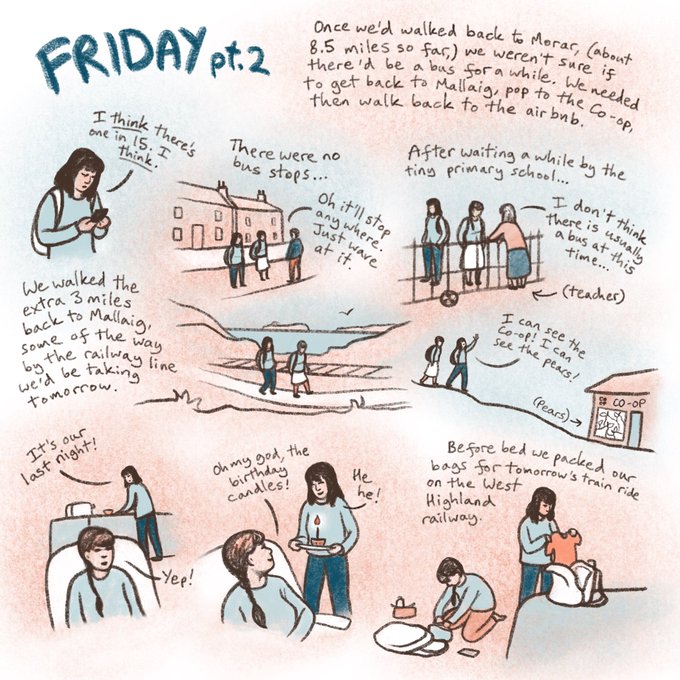 FRIDAY pt.2
Once we'd walked back to Morar, (about
8.5 miles so far,) we weren't sure if
there'd be a bus for a while. We needed
to get back to Mallaig, pop to the Co-op,
then walk back to the airbnb.
I think there's
one in 15. I
think.
There were no
bus stops...
Oh it'll stop
anywhere!
Just wave
at it.
After waiting a while by the
tiny primary school...
I don't think
there is usually
a bus at this
time...
(teacher)
We walked the
extra 3 miles
back to Mallaig,
some of the way
by the railway line
we'd be taking
tomorrow.
I can see the
Co-op! I can
see the pears!
(Pears)
CO-OP
It's our
last night!
Yep!
Oh my god, the
birthday
candles!
He
he!
Before bed we packed our
bags for tomorrow's train ride
on the West
Highland
railway.